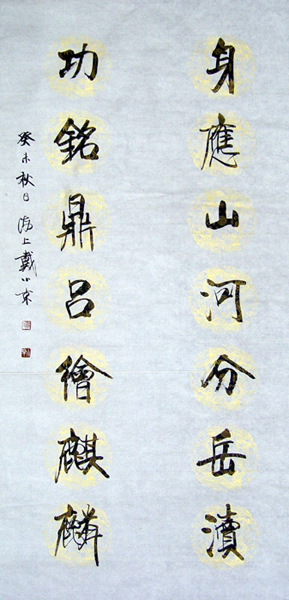 身應山河分岳瀆
功銘鼎呂繪麒麟
癸未秋日海上戴小京